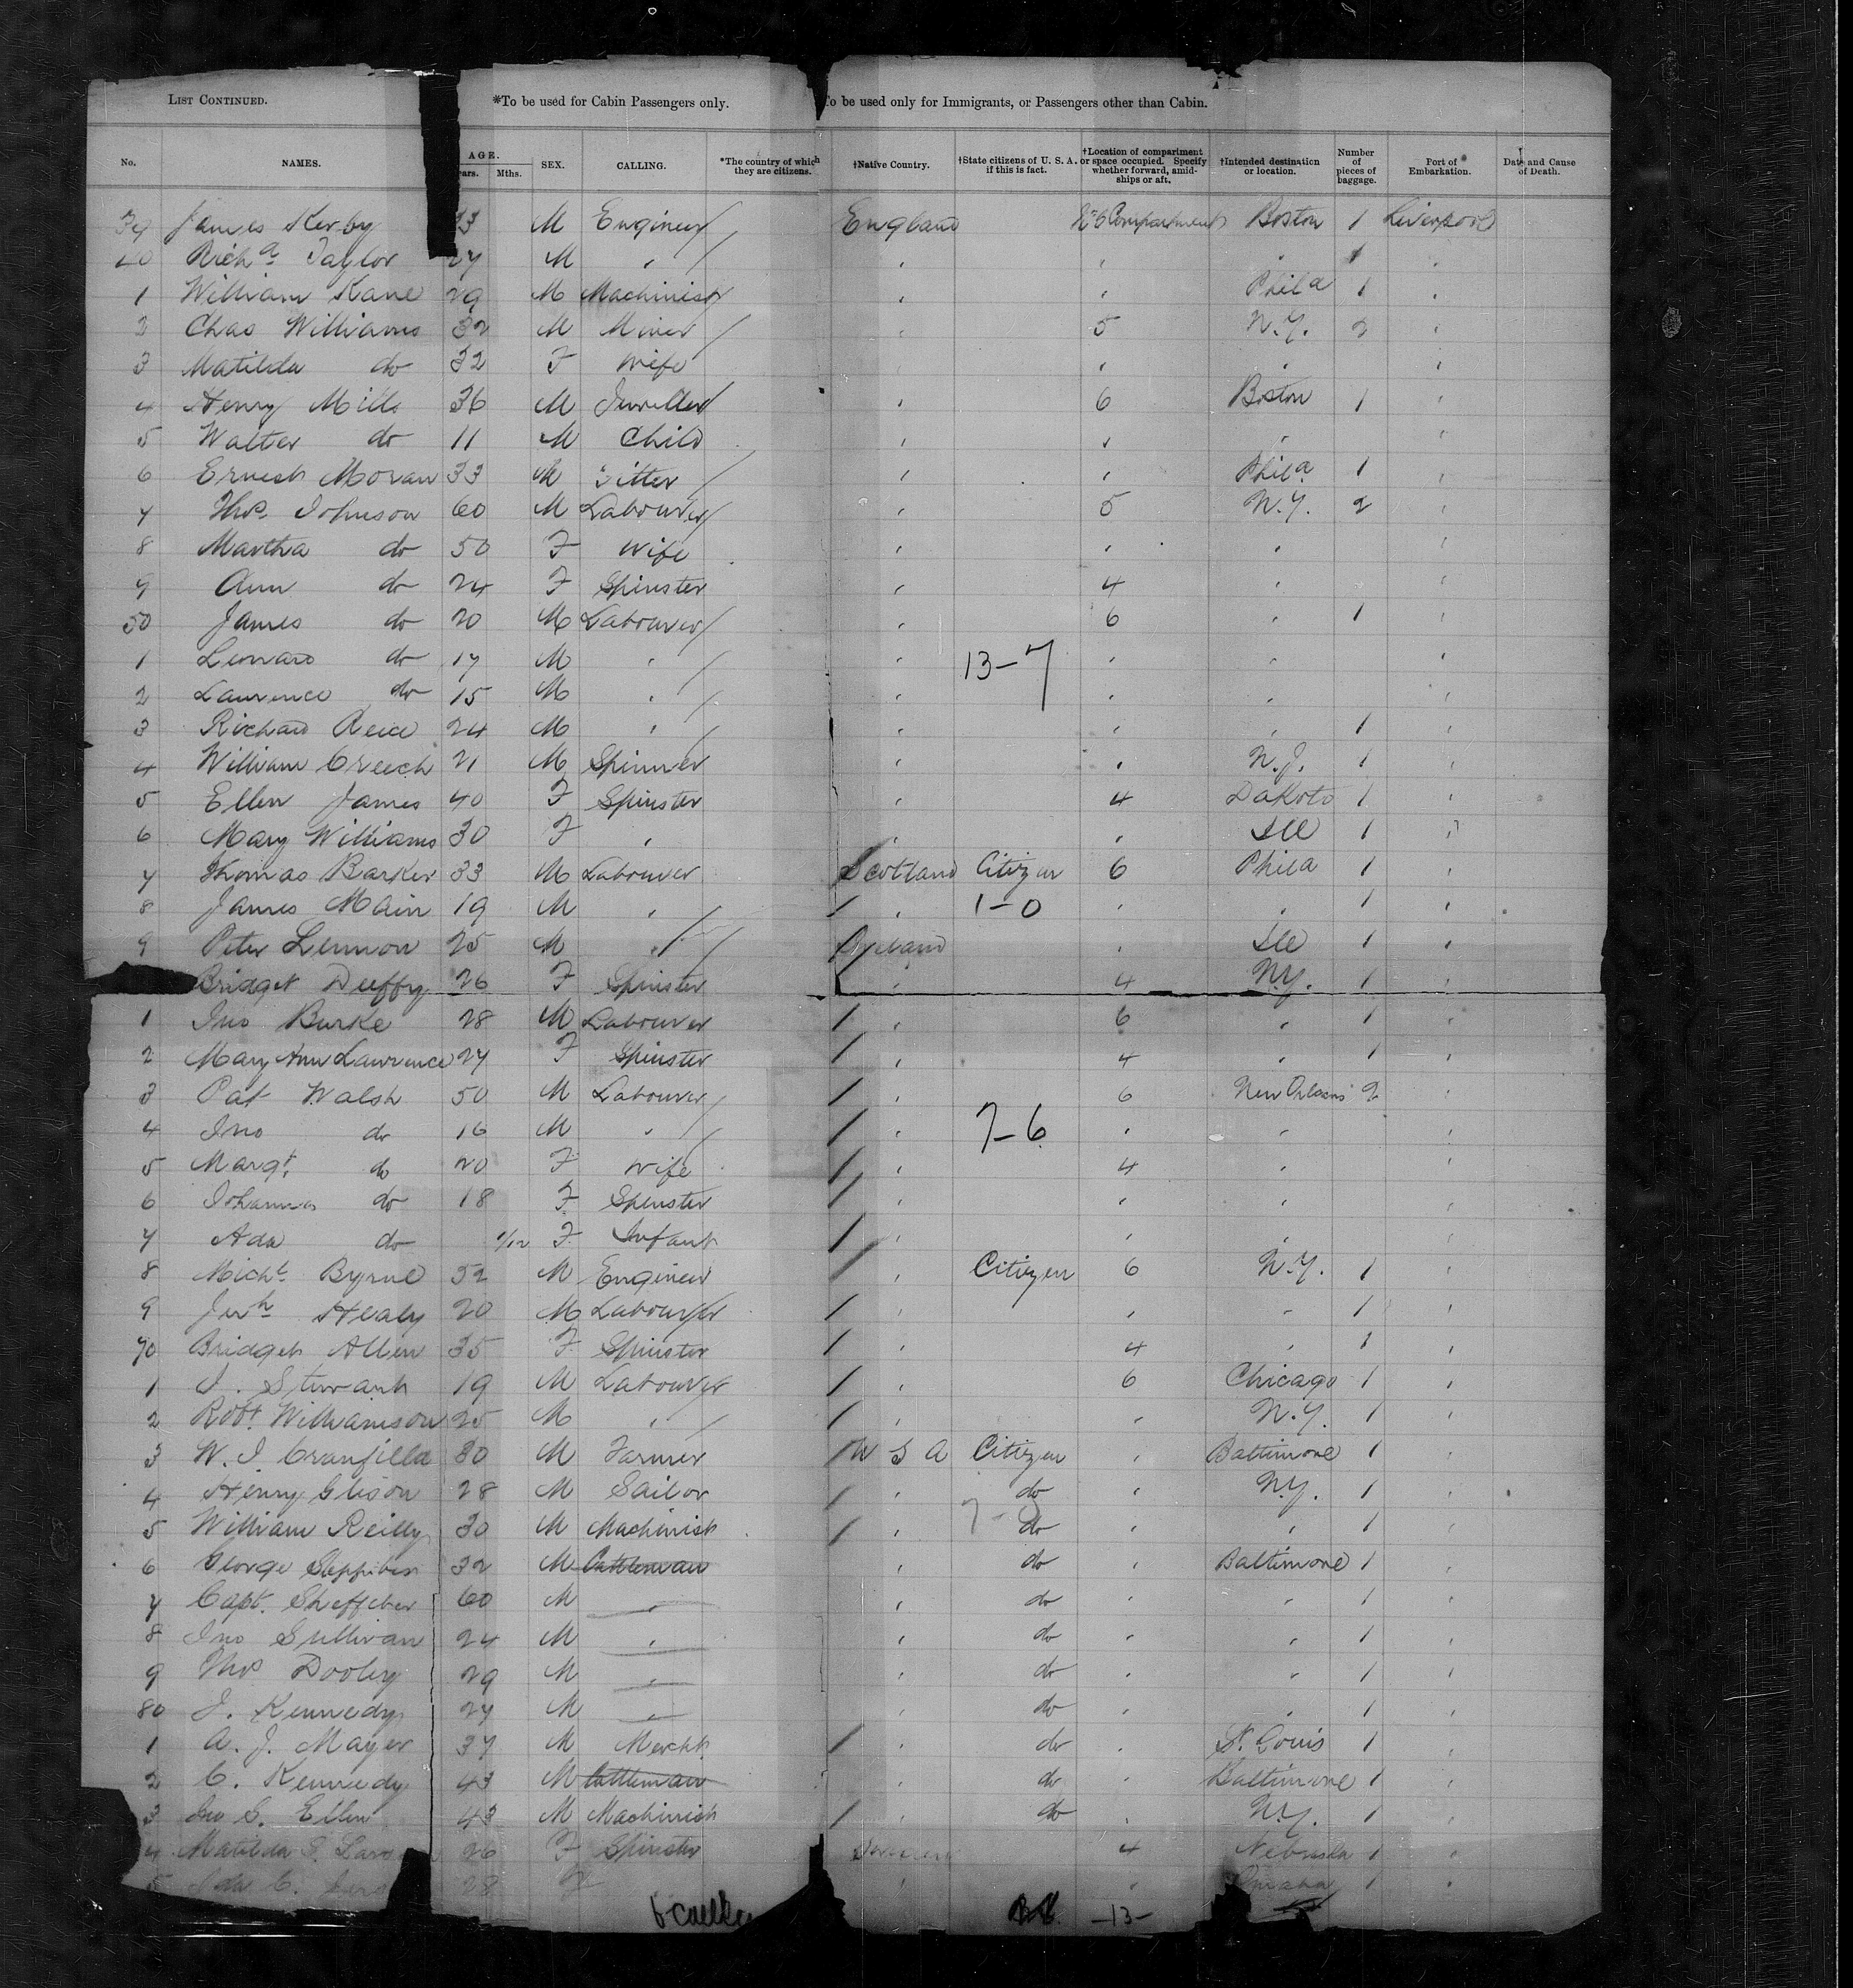 LIST CONTINUED. *To be used for Cabin Passengers only. To be used only for Immigrants, or Passengers other than Cabin.
No. NAMES. AGE. Mths. SEX. CALLING. *The country of which they are citizens. †Native Country. †State citizens of U. S. A. if this is fact. †Location of compartment or space occupied. Specify whether forward, amidships or aft. †Intended destination or location. Number of pieces of baggage. Port of Embarkation. Date and Cause of Death.
James Kerby 33 M Engineer England Compartment Boston 1 Liverpool
40 Richd Taylor 27 M " " " " 1 "
1 William Kane 29 M Machinist " " Phila 1 "
2 Chas Williams 32 M Miner " 5 N.Y. 2 "
3 Matilda do 32 F Wife " " "
4 Henry Mills 36 M Jeweller " 6 Boston 1 "
5 Walter do 11 M Child " " " "
6 Ernest Moran 33 M Fitter " " Phila 1 "
7 Thos. Johnson 60 M Labourer " 5 N.Y. 2 "
8 Martha do 50 F Wife " " " "
9 Ann do 24 F Spinster " 4 " "
50 James do 20 M Labourer " 6 " 1 "
1 Leonard do 17 M " " 13-7 " " "
2 Laurence do 15 M " " " " "
3 Richard Reice 24 M " " " " 1 "
4 William Creech 21 M Spinner " " N.J. 1 "
5 Ellen James 40 F Spinster " 4 Dakota 1 "
6 Mary Williams 30 F " " " Ill 1 "
7 Thomas Barker 33 M Labourer Scotland Citizen 6 Phila 1 "
8 James Main 19 M " " 1-0 " " 1 "
9 Peter Lennon 25 M " Ireland " Ill 1 "
Bridget Duffy 26 F Spinster " 4 N.Y. 1 "
1 Jno Burke 28 M Labourer " 6 " 1 "
2 Mary Ann Lawrence 27 F Spinster " 4 " 1 "
3 Pat Walsh 50 M Labourer " 6 New Orleans 2 "
4 Jno do 16 M " " 7-6 " " "
5 Margt. do 20 F Wife " 4 " "
6 Johanna do 18 F Spinster " " " "
7 Ada do 1/12 F Infant " " " "
8 Michl Byrne 52 M Engineer " Citizen 6 N.Y. 1 "
9 Jerh Healy 20 M Labourer " " " 1 "
70 Bridget Allen 35 F Spinster " 4 " 1 "
1 J. Stewart 19 M Labourer " 6 Chicago 1 "
2 Robt Williamson 25 M " " " N.Y. 1 "
3 W. J. Cranfilld 30 M Farmer U S A Citizen " Baltimore 1 "
4 Henry Glison 28 M Sailor " do " N.Y. 1 "
5 William Reilly 30 M Machinist " do " " 1 "
6 George 32 M Cattleman " do " Baltimore 1 "
7 Capt. 60 M " " do " " 1 "
8 Jno Sullivan 24 M " " do " " 1 "
9 Thos Dooley 29 M " " do " " 1 "
80 J. Kennedy 27 M " " do " " 1 "
1 A. J. Mayer 37 M Mercht. " do " St. Louis 1 "
2 C. Kennedy 43 M Cattleman " do " Baltimore 1 "
3 Jno S. Ellen 43 M Machinist " do " N.Y. 1 "
4 Matilda 26 F Spinster 4 Nebraska 1 "
5 Ida C. 28 F " " Omaha 1 "
-13-